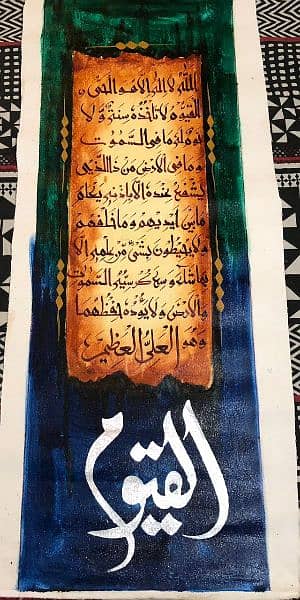 اللّٰه لا اله الا هو الحىّ
القيّوم لا تاخذه سنة وّ لا
نوم له ما فى السّمٰوٰت
و ما فى الارض من ذا الّذى
يشفع عنده الا باذنه يعلم
ما بين ايديهم و ما خلفهم
ولا يحيطون بشىءٍ مّن علمه الا
بما شاء وسع كرسيّه السّمٰوٰت
والارض ولا يـُٔوده حفظهما
وهو العلىّ العظيم
القيوم